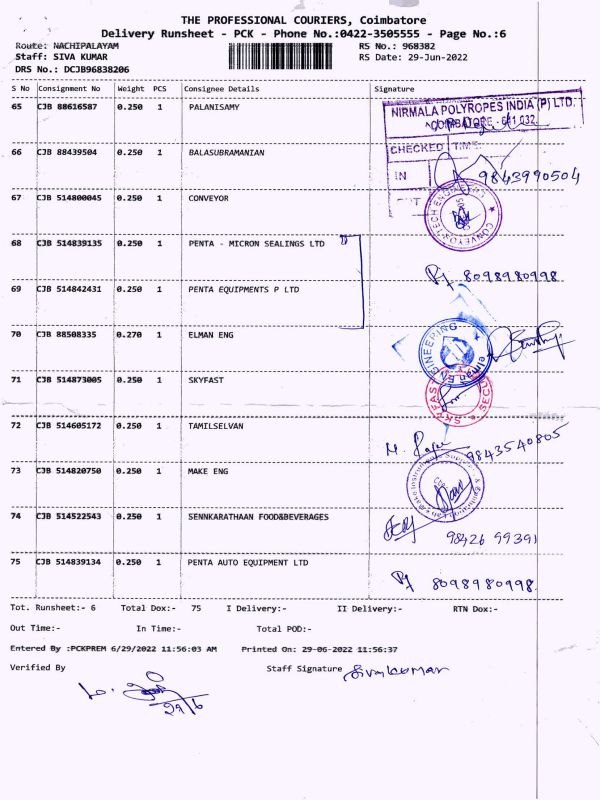 THE PROFESSIONAL COURIERS, Coimbatore
Delivery Runsheet - PCK - Phone No.:0422-3505555 - Page No.:6
Route: NACHIPALAYAM RS No.: 968382
Staff: SIVA KUMAR RS Date: 29-Jun-2022
DRS No.: DCJB96838206
S No Consignment No Weight PCS Consignee Details Signature
65 CJB 88616587 0.250 1 PALANISAMY
NIRMALA POLYROPES INDIA (P) LTD.
COIMBATORE - 641 032.
CHECKED TIME
66 CJB 88439504 0.250 1 BALASUBRAMANIAN
IN 9843990504
67 CJB 514800045 0.250 1 CONVEYOR
68 CJB 514839135 0.250 1 PENTA - MICRON SEALINGS LTD
8098980998
69 CJB 514842431 0.250 1 PENTA EQUIPMENTS P LTD
70 CJB 88508335 0.270 1 ELMAN ENG
71 CJB 514873005 0.250 1 SKYFAST
72 CJB 514605172 0.250 1 TAMILSELVAN
9843540805
73 CJB 514820750 0.250 1 MAKE ENG
74 CJB 514522543 0.250 1 SENNKARATHAAN FOOD&BEVERAGES
98426 99391
75 CJB 514839134 0.250 1 PENTA AUTO EQUIPMENT LTD
8098980998
Tot. Runsheet:- 6 Total Dox:- 75 I Delivery:- II Delivery:- RTN Dox:-
Out Time:- In Time:- Total POD:-
Entered By :PCKPREM 6/29/2022 11:56:03 AM Printed On: 29-06-2022 11:56:37
Verified By Staff Signature Sivakumar
29/6